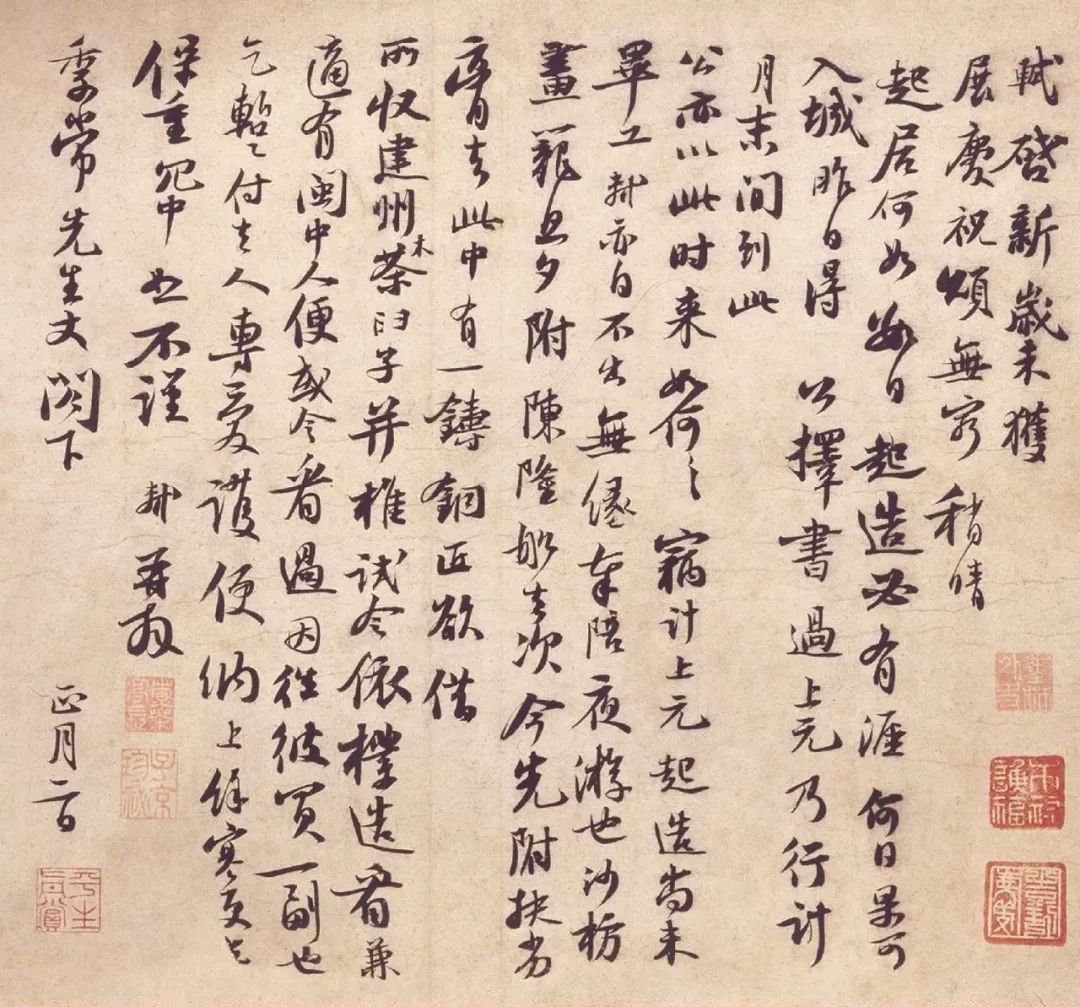 軾啓新歲未獲
展慶祝頌無窮稍晴
起居何如數日起造必有涯何日果可
入城昨日得公擇書過上元乃行計
月末間到此
公亦以此時来如何々竊計上元起造尚未
畢工軾亦自不出無緣奉陪夜游也沙枋
畫籠旦夕附陳隆船去次今先附扶劣
膏去此中有一鑄銅匠欲借
所收建州木茶臼子并椎試令依樣造看兼
適有閩中人便或令看過因往彼買一副也
乞暫付去人專愛護便納上餘寒更乞
保重冗中恕不謹軾再拜
季常先生丈閣下正月二日
平生真賞